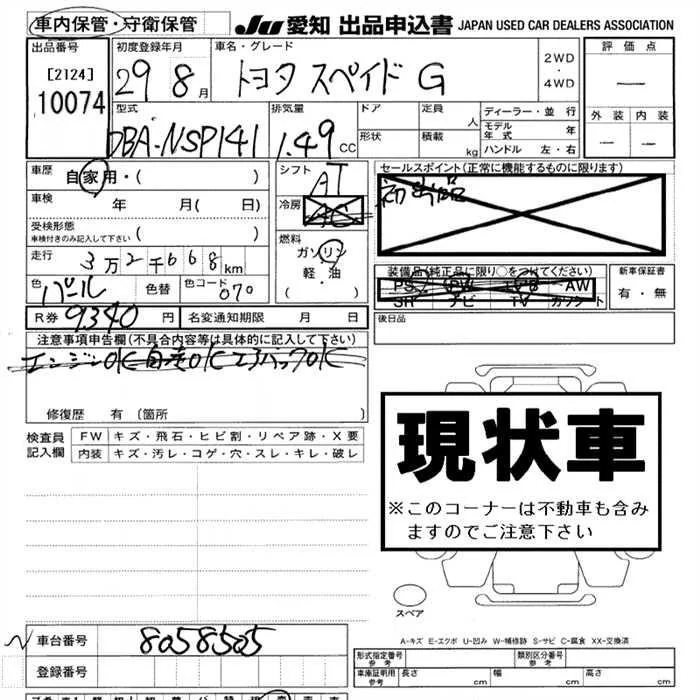 車内保管・守衛保管 JU 愛知 出品申込書 JAPAN USED CAR DEALERS ASSOCIATION
出品番号 初度登録年月 車名・グレード 評価点
[2124] 29 8月 トヨタ スペイド G 2WD・4WD —
10074
型式 排気量 ドア 定員 人 ディーラー・並行 外装 内装
DBA-NSP141 1.49 CC 形状 積載 kg モデル年式 年 — —
ハンドル 左・右
車歴 自家用・( ) シフト AT セールスポイント(正常に機能するものに限ります)
車検 年 月( 日) 冷房 AC
受検形態
車検付きのみ記入して下さい ( ) 燃料 ガソリン
走行 3万2千668km 軽・油 装備品(純正品に限り○をつけてください) 新車保証書
色 パール 色替 色コード 070 ( ) PS PW AW 有・無
SR ナビ TV カワシート
R券 9340円 名変通知期限 月 日 後日品
注意事項申告欄(不具合内容等は具体的に記入して下さい)
エンジンOK 自走OK エアバックOK
修復歴 有 〔箇所 〕
現状車
※このコーナーは不動車も含みますのでご注意下さい
検査員 FW キズ・飛石・ヒビ割・リペア跡・X要
記入欄 内装 キズ・汚レ・コゲ・穴・スレ・キレ・破レ
スペア
A-キズ E-エクボ U-凹み W-補修跡 S-サビ C-腐食 XX-交換済
車台番号 8058505 形式指定番号 参考 類別区分番号 参考
登録番号 車庫証明用 参考 長さ cm 幅 cm 高さ cm